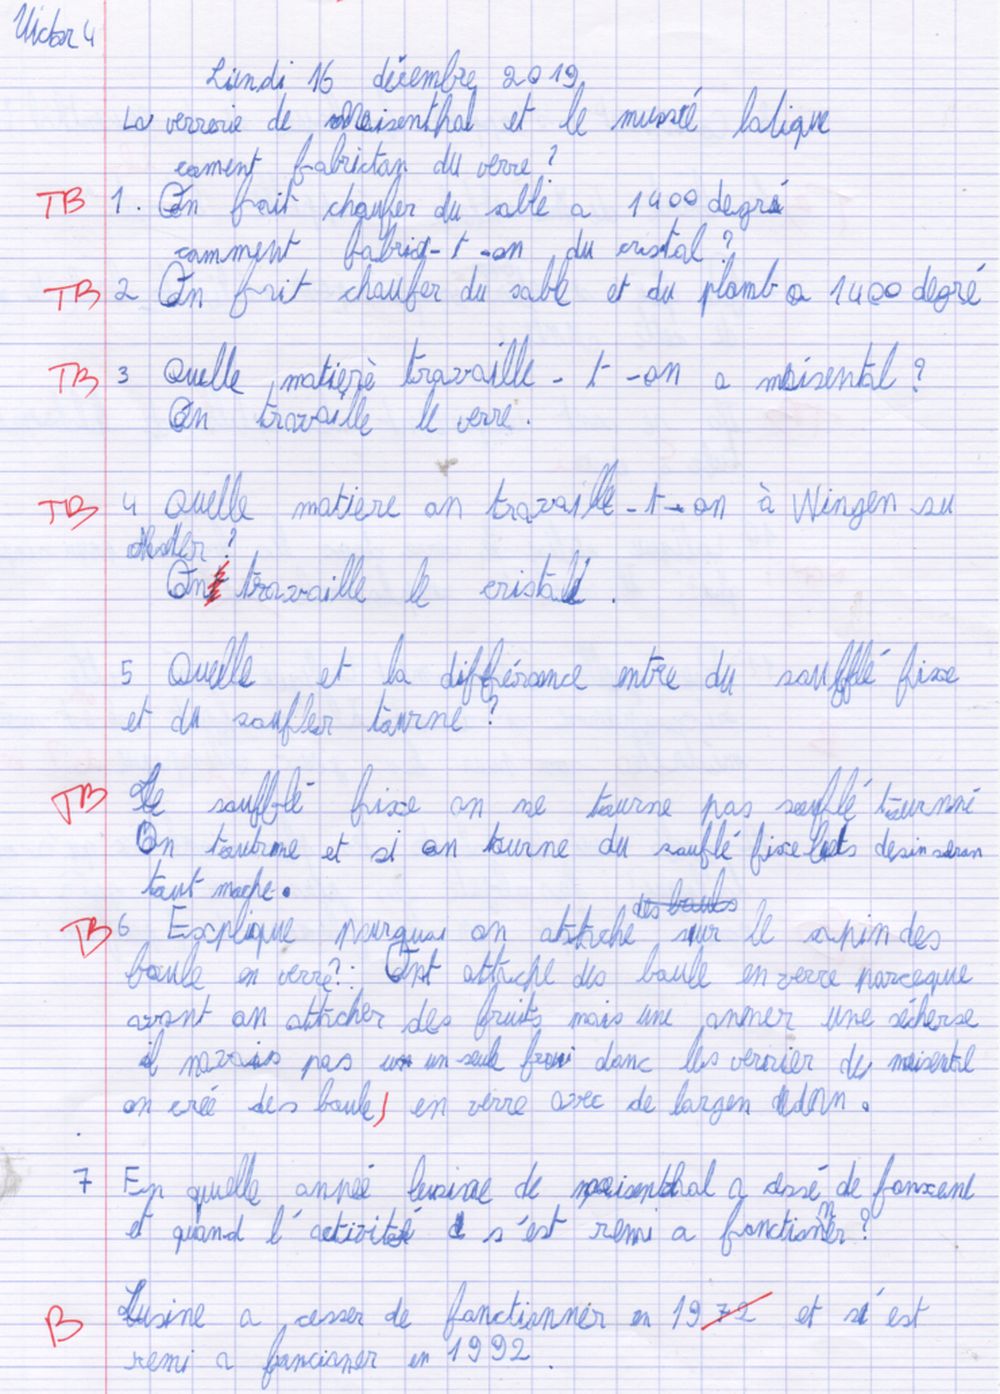 Victor 4
Lundi 16 décembre 2019
La verrerie de Meisenthal et le mussée lalique
coment fabrictan du verre ?
TB 1. On fait chaufer du sable a 1400 degré
comment fabric-t-on du cristal ?
TB 2 On fait chaufer du sable et du plomb a 1400 degré
TB 3 Quelle matière travaille-t-on a meisental ?
On travaille le verre.
TB 4 Quelle matière on travaille-t-on à Wingen su
Moder ?
On travaille le cristal.
5 Quelle et la différance entre du soufflé fixe
et du soufler tourné ?
TB Le soufflé fixe on ne tourne pas soufflé tournné
On tourne et si on tourne du souflé fixe lets desin seran
tout moche.
des boules
TB 6 Explique pourquoi on attache sur le sapin des
boule en verre ? : Ont attache des boule en verre parceque
avant on attacher des fruits mais une anner une sécherse
il navais pas un seule frui donc les verrier de meisentl
on créé des boules en verre avec de largen dedan.
7 En quelle année leusine de meisenthal a cessé de fonxene
et quand l'activité s'est remi a fonctionner ?
B Lusine a cesser de fonctionner en 1972 et s'est
remi a foncioner en 1992.